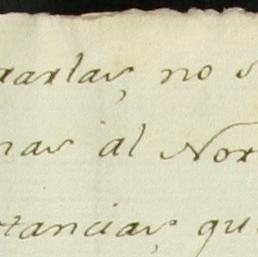 rarlas, no s
nas al Nor
tancias, que